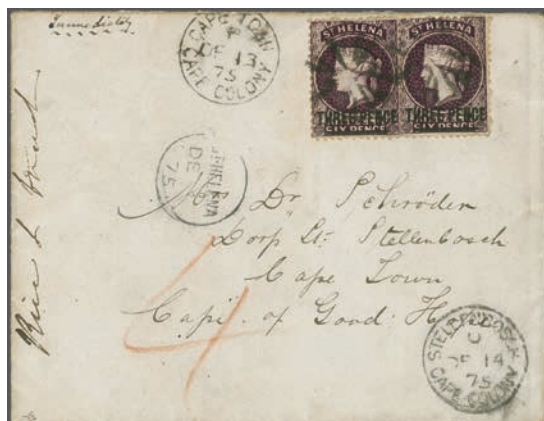 Immediately
CAPE TOWN
DE 13
75
CAPE COLONY
ST HELENA
THREE PENCE
SIX PENCE
ST HELENA
THREE PENCE
SIX PENCE
ST HELENA
DE
75
Dr. Schröder
Dorp St. Stellenbosch
Cape Town
Cape of Good Hope
4
STELLENBOSCH
DE 14
75
CAPE COLONY